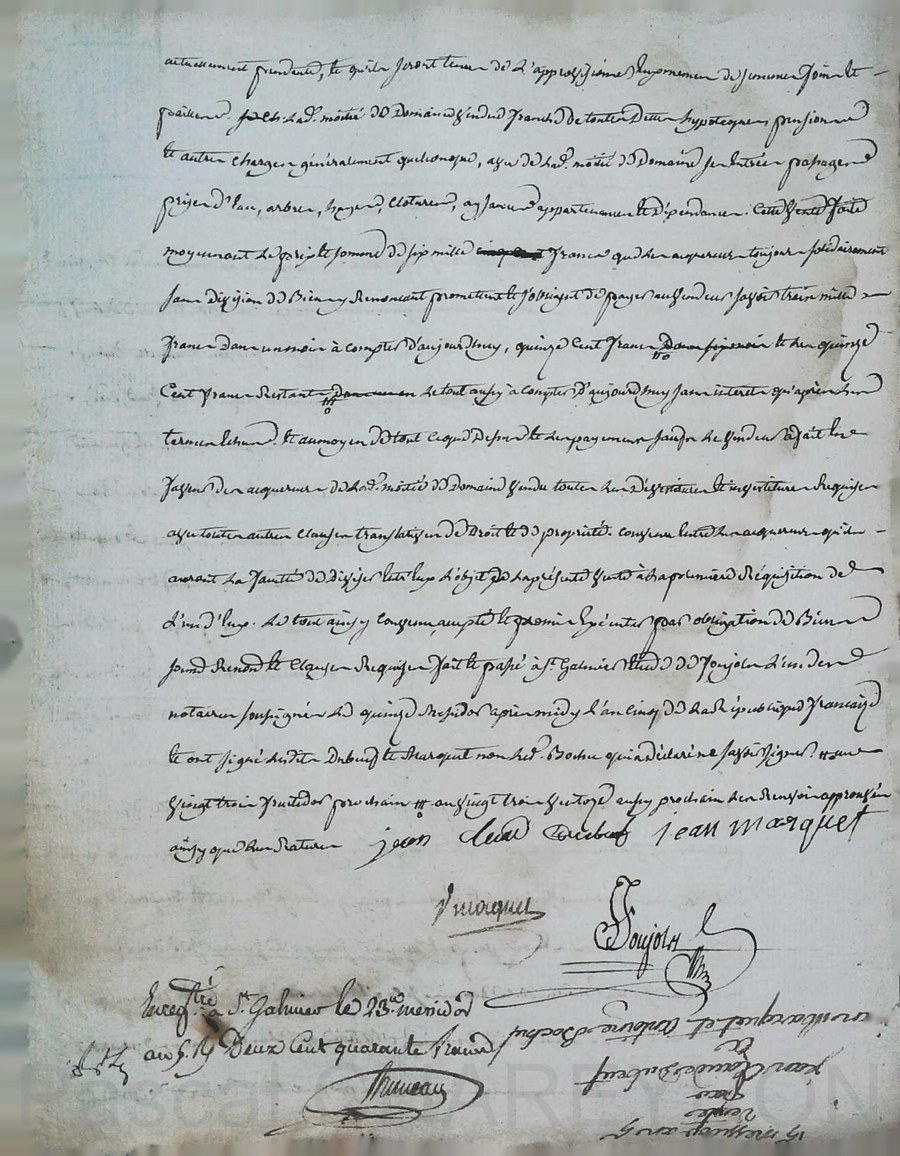 actuellement pendante, et qu'ils seront tenus de
parties. la de. moitié de Domaine vendue franche de toutes Dettes hypoteques, pensions
et autres charges généralement quelconque, avec de lade. moitié de Domaine ses entrées passages
prises d'eau, arbres, hayes, clotures, aysances appartenances et dépendances. Cette vente faite
moyennant le prix et somme de six mille francs que les acquereurs toujours solidairement
sans division de Biens y Renonçant promettent et s'obligent de payer au vendeur savoir trois mille
francs dans un mois à compter d'aujourd'huy, quinze cent francs Dans six mois et les quinze
Cent francs Restants Dans un an le tout aussy à compter D'aujourd'huy sans interets qu'après les
termes échus. et au moyen de tout ce que Dessus et les payements saufs le vendeur a fait en
faveur des acquereurs de lade. moitié de Domaine vendue toutes les Devetitures et investitures Requises
avec toutes autres clauses translatives de Droit et de propriété. Convenu entre les acquereurs qu'ils
auront la faculté de diviser entr'eux l'objet de la présente vente à la première Réquisition de
l'un d'eux. le tout ainsy convenu, accepté et promis Exécuter par obligation de Biens
soumd Renond et Clauses Requises fait et passé à St Galmier Etude de Poujols l'un des
notaires soussignés le quinze Messidor après midy l'an cinq de la République française
et ont signé lesdits Dubeuf et Marquet non led. Bochu qui a déclaré ne savoir signer. # au
vingt trois fructidor prochain ## au vingt trois ventose aussy prochain les Renvois approuvés
ainsy que les Ratures jean claude Dubeuf jean marquet
Vmarquet
Poujols
Enregtré à St Galmier le 23 messidor
an 5. Rç Deux Cent quarante francs
Bruneau
15 messidor an 5
Vente
Par
jean Claude Dubeuf
à
marquet et antoine Bochu